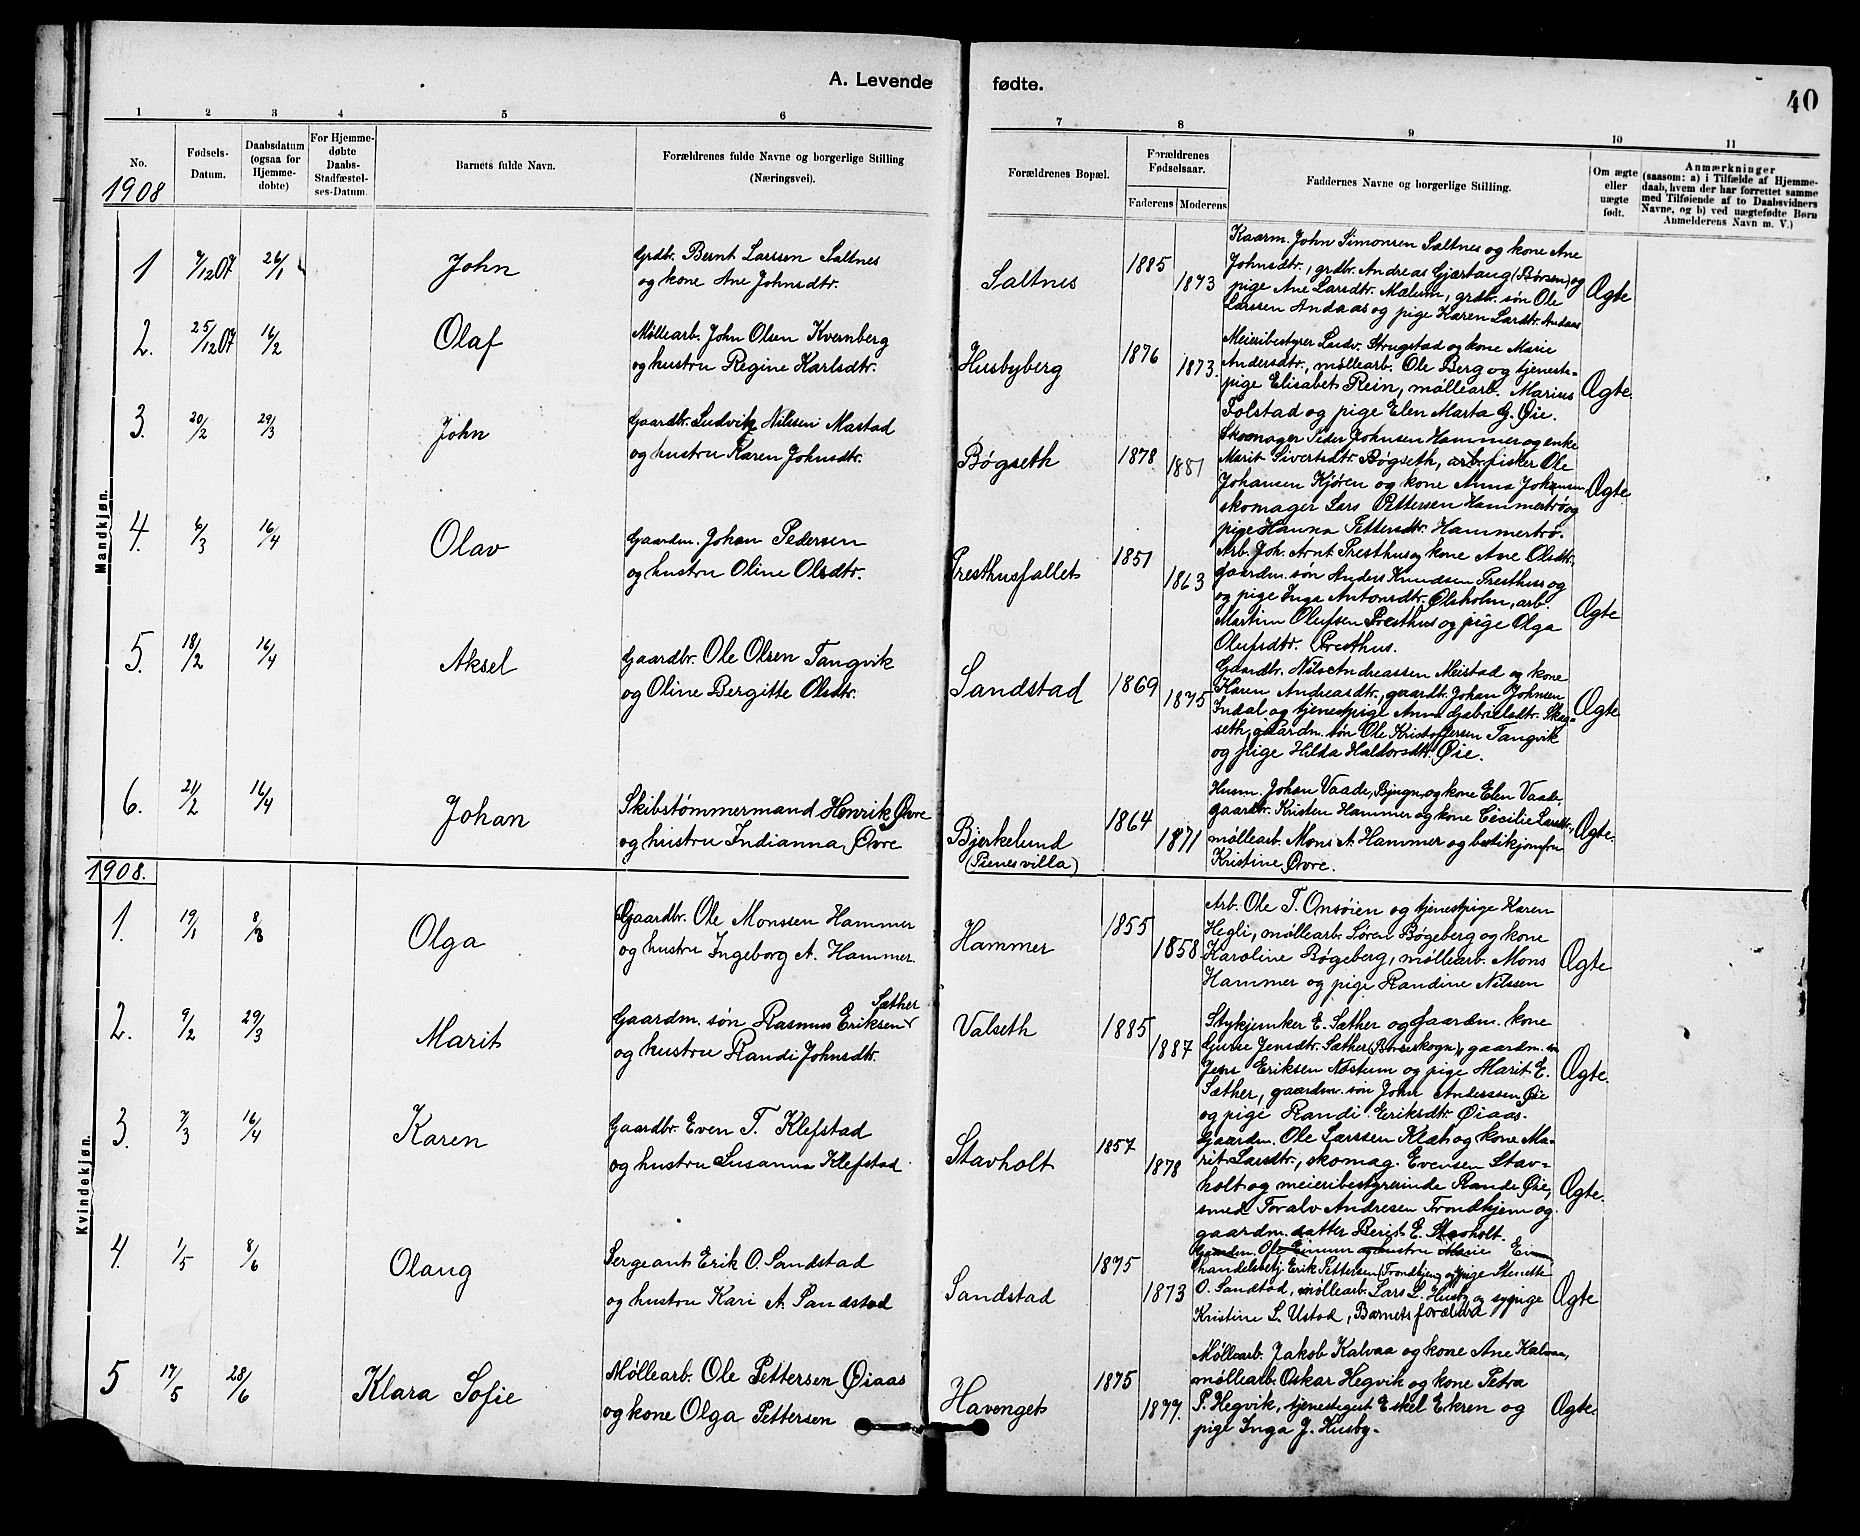 A. Levende
fødte.
40
1 2 3 4 5 6
7 8 9 10 11
No.
Fødsels-
Datum.
Daabsdatum
(ogsaa for
Hjemme-
døbte)
For Hjemme-
døbte
Daabs-
Stadfæstel-
ses-Datum.
Barnets fulde Navn.
Forældrenes fulde Navne og borgerlige Stilling
(Næringsvei).
Forældrenes Bopæl.
Forældrenes
Fødselsaar.
Faderens
Moderens
Faddernes Navne og borgerlige Stilling.
Om ægte
eller
uægte
født.
Anmærkninger
(saasom: a) i Tilfælde af Hjemme-
daab, hvem der har forrettet samme
med Tilføiende af to Daabsvidners
Navne, og b) ved uægtefødte Børn
Anmelderens Navn m. V.)
1908
Mandkjøn.
1 7/12 07 26/1 John
Grdbr. Bernt Larssen Saltnes
og kone Ane Johnsdtr.
Saltnes 1885 1873
Kaarm. John Simonsen Saltnes og kone Ane
Johnsdtr., grdbr. Andreas Gjærtaug (Børsen) og
pige Ane Larsdtr. Mælum, grdbr. søn Ole
Larssen Andaas og pige Karen Larsdtr. Andaas
Ægte
2. 25/12 07 16/2 Olaf
Møllearb. John Olsen Kvernberg
og hustru Regine Karlsdtr.
Husbyberg 1876 1873.
Meieribestyrer Ludv. Strugstad og kone Marie
Andersdtr., møllearb. Ole Berg og tjeneste-
pige Elisabet Rein, møllearb. Marius
Folstad og pige Elen Marta G. Øie.
Ægte.
3. 20/2 29/3 John
Gaardbr. Ludvik Nilssen Mastad
og hustru Karen Johnsdtr.
Bøgseth 1878 1881
Skomager Peder Johnsen Hammer og enke
Marit Sivertsdtr. Bøgseth, arb. fisker Ole
Johansen Kjøren og kone Anna Johansen
skomager Lars Pettersen Hammertrø og
pige Hanna Pettersdtr. Hammertrø.
Ægte
4. 6/3 16/4 Olav
Gaardm. Johan Pedersen
og hustru Oline Olsdtr.
Presthusfallet 1851 1863
Arb. Joh. Arnt Presthus og kone Ane Olsdtr.
gaardm. søn Anders Knudsen Presthus og
og pige Inga Antonsdtr. Ølsholm, arb.
Martin Olufsen Presthus og pige Olga
Olufsdtr. Presthus.
Ægte
5. 18/2 16/4 Aksel
Gaardbr. Ole Olsen Tangvik
og Oline Bergitte Olsdtr.
Sandstad 1869 1875
Gaardbr. Nils Andreassen Meistad og kone
Karen Andreasdtr., gaardbr. Johan Johnsen
Indal og tjenestpige Anna Gabrielsdtr. Skau-
seth, gaardm. søn Ole Kristoffersen Tangvik
og pige Hilda Haldorsdtr. Øie.
Ægte
6. 21/2 16/4 Johan
Skibstømmermand Henrik Øvre
og hustru Indianna Øvre
Bjerkelund
(Pienesvilla)
1864 1871
Husm. Johan Vaade, Bjugn, og kone Elen Vaade,
gaardbr. Kristen Hammer og kone Cecilie Larsdtr.,
møllearb. Mons A. Hammer og bestikjomfru
Kristine Øvre.
Ægte.
1908.
Kvindekjøn.
1. 19/1 8/3 Olga
Gaardbr. Ole Monssen Hammer
og hustru Ingeborg A. Hammer
Hammer 1855 1858.
Arb. Ole T. Onsøien og tjenestpige Karen
Hegli, møllearb. Søren Bøgeberg og kone
Karoline Bøgeberg, møllearb. Mons
Hammer og pige Randine Nilssen
Ægte
2. 9/2 29/3 Marit
Sæther
Gaardm. søn Rasmus Eriksen
og hustru Randi Johnsdtr.
Valseth 1885 1887
Stykjunker E. Sæther og Gaardm. kone
Gurue Jensdtr. Sæther (Børseskogn), gaardm. søn
Jens Eriksen Nøstum og pige Marit E.
Sæther, gaardm. søn John Anderssen Øie
og pige Randi Eriksdtr. Øiaas.
Ægte.
3. 7/3 16/4 Karen
Gaardbr. Even T. Klefstad
og hustru Susanna Klefstad
Stavholt 1857 1878
Gaardm. Ole Larssen Klæt og kone Ma-
rit Larsdtr., skomag. Evensen Stav-
holt og meieribestyrerinde Rande Øie,
smed Toralv Andresen Trondhjem og
gaardm. datter Berit E. Stavholt.
Ægte.
4. 1/5 8/6 Olaug
Sergeant Erik O. Sandstad
og hustru Kari A. Sandstad
Sandstad 1875 1873
Gaardm. Ole Einum og hustru Marie
handelsbetj. Erik Pettersen (Trondhjem) og pige Stenette
O. Sandstad, møllearb. Lars L. Husby og sypige
Kristine L. Ustad, Barnets forældre
Ægte
5 17/5 28/6 Klara Sofie
Møllearb. Ole Pettersen Øiaas
og kone Olga Pettersen
Havenget 1875 1877.
Møllearb. Jakob Kalvaa og kone Ane Kalvaa,
møllearb. Oskar Hegvik og kone Petra
P. Hegvik, tjenestegut Eskel Ekren og
pige Inga J. Husby.
Ægte.